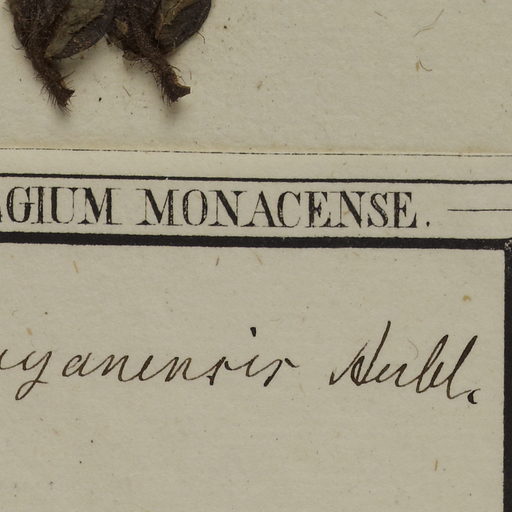 GIUM MONACENSE.
uyanensis Aubl.